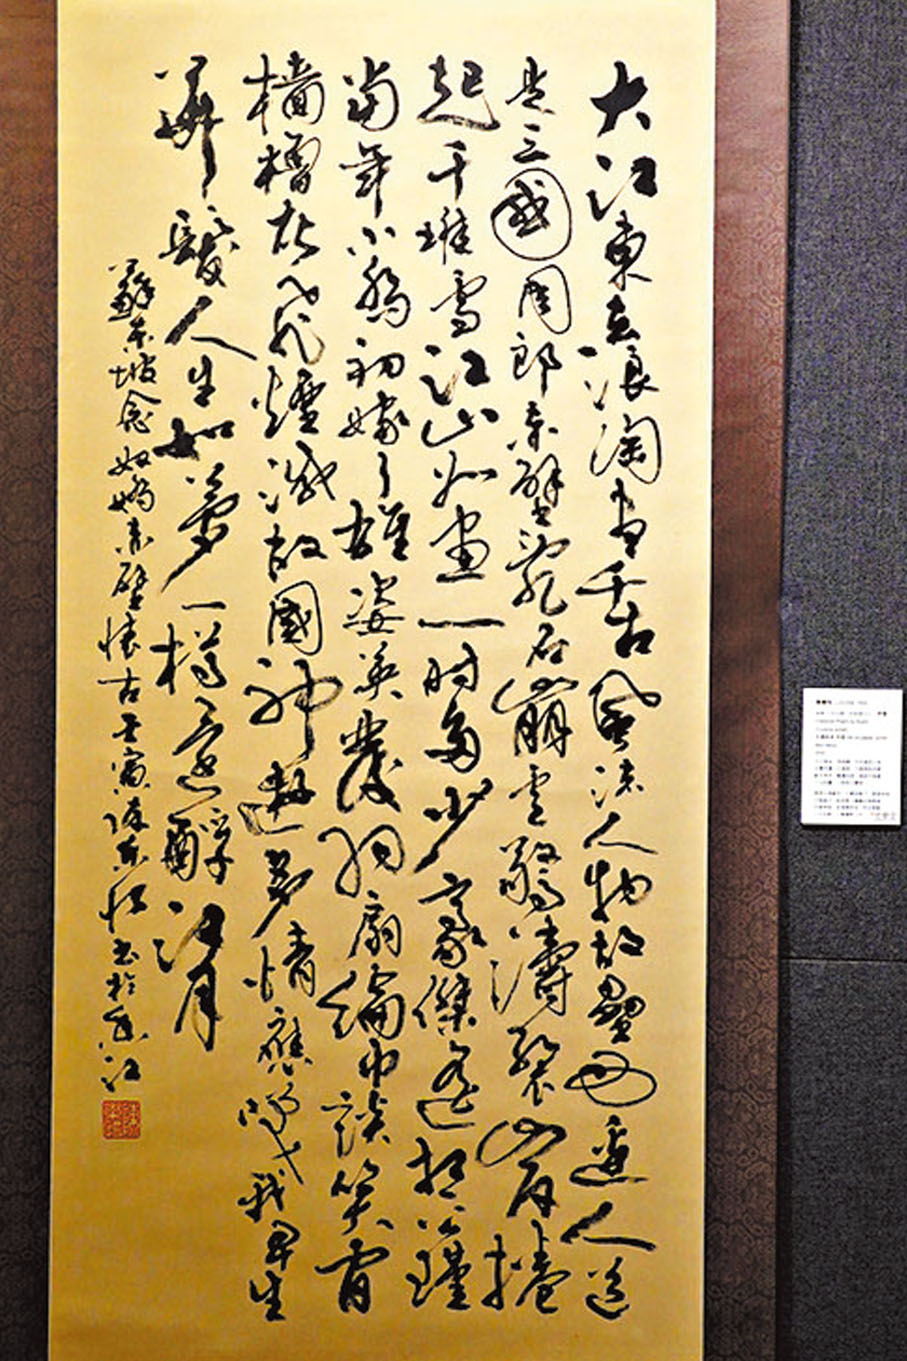 大江東去浪淘盡千古風流人物故壘西邊人道
是三國周郎赤壁亂石崩雲驚濤裂岸捲
起千堆雪江山如畫一時多少豪傑遙想公瑾
當年小喬初嫁了雄姿英發羽扇綸巾談笑間
檣櫓灰飛煙滅故國神遊多情應笑我早生
華髮人生如夢一樽還酹江月
蘇東坡念奴嬌赤壁懷古壬寅陳東書於香江